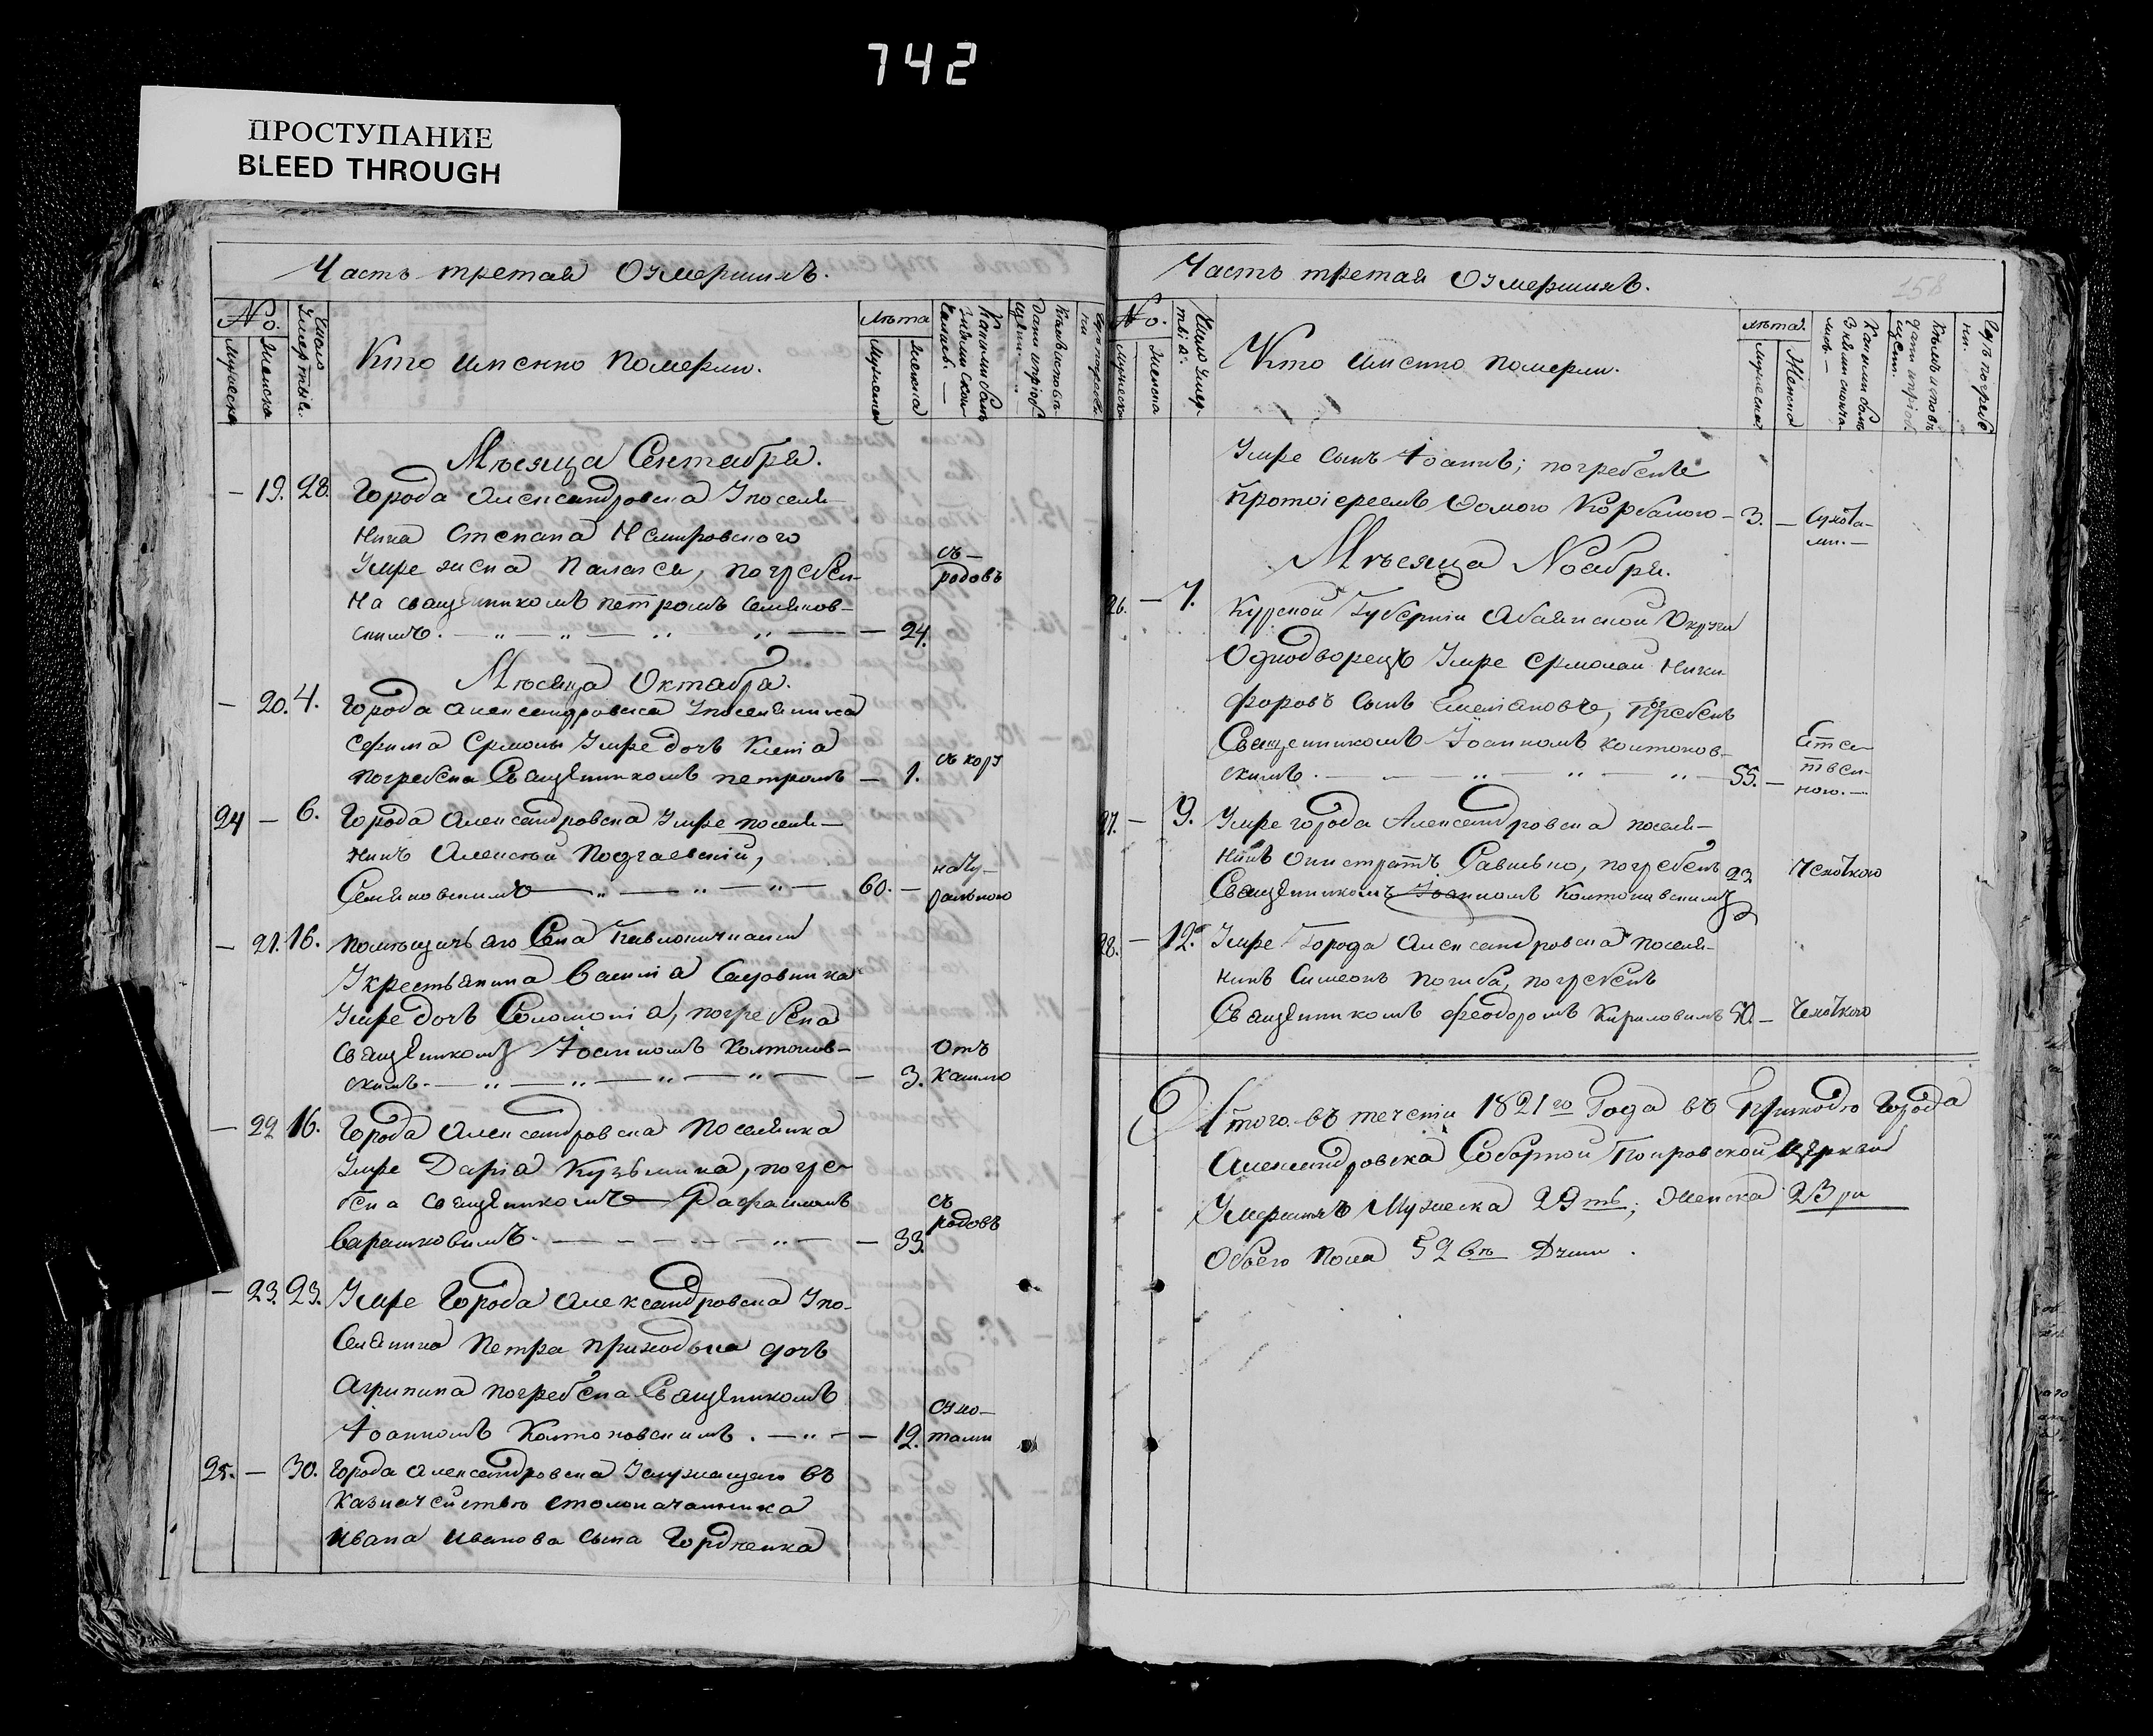 742
ПРОСТУПАНИЕ
BLEED THROUGH
Часть третая О умершихъ.
No.
Мужеска
Женска
Число умертвій.
Кто имено померли.
Лѣта
Мужеска
Женска
Какими болезнями скончались.
Кѣмъ исповѣданы и пріобщены.
Мѣсяца Сентабря.
– 19. 28. Города Александровска у поселя–
нина Степана Немировского
умре жена Палагея, погребе–
на священникомъ Петромъ Семянов–
скимъ. — 24. съ родовъ
Мѣсяца Октабра.
– 20. 4. Города Александровска у поселянина
Ефима Ермолы умре дочь Ксенія
погребена Священникомъ Петромъ — 1. съ кору
24 – 6. Города Александровска умре поселя–
нинъ Алексѣй Подгаевскій,
Семяновскимъ 60. – натуральною
– 21. 16. помѣщичьяго села
у крестьянина Василія Садовника
умре дочь Соломонія, погребена
священникомъ Іоанномъ Колтонов–
скимъ. — 3. Отъ кашлю
– 22 16. Города Александровска поселянка
умре Дарія Кузьмина, погре–
бена священникомъ Рафаиломъ
Варашковимъ. — 33. съ родовъ
– 23. 23. Умре Города Александровска у по–
селянина Петра Приходька дочь
Агрипина погребена Священникомъ
Іоанномъ Колтоновскимъ. — 12. сухотами
25. – 30. Города Александровска у служащего въ
казначействѣ столоначалника
Ивана Иванова сына Гордѣенка
Часть третая О умершихъ.
158
No.
Мужеска
Женска
Число умертвій.
Кто имено померли.
Лѣта.
Мужеска
Женска
Какими болезнями скончались. —
Кѣмъ исповѣданы и пріобщены.
Где погребены.
Умре сынъ Іоаннъ; погребенъ
протоіереемъ Фомою Корбаномъ – 3. – Сухотами. —
Мѣсяца Ноабря.
26. – 7. Курской Губерніи Абаянской Округи
Однодворецъ умре Ермолай Ники–
форовъ сынъ Емеліановъ, погребенъ
Священникомъ Іоанномъ Колтонов–
скимъ. — 55. – Естественною. —
27. – 9. Умре города Александровска поселя–
нинъ Онистратъ Савилко, погребенъ
Священникомъ Іоанномъ Колтоновскимъ 23 Чехоткою
28. – 12. Умре Города Александровска поселя–
нинъ Симеонъ Погиба, погребенъ
Священникомъ Феодоромъ Кириловимъ 50. – Чехоткою
Итого въ теченіи 1821го Года въ Приходѣ Города
Александровска Соборной Покровской Церкви
Умершихъ Мужеска 29ть; Женска 23ри
Обоего Пола 52 вѣ Души.